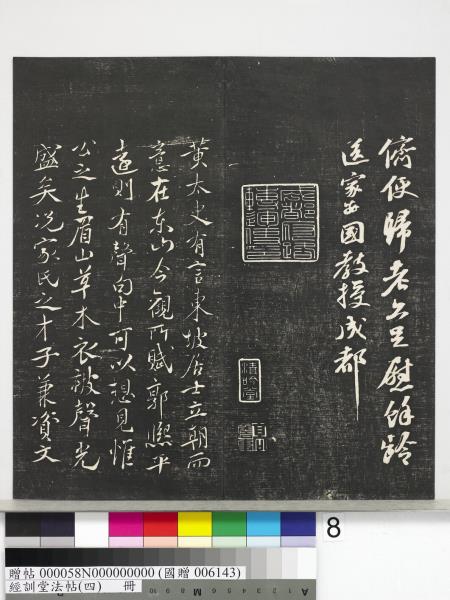 儕便歸老亦足慰餘齡
送家安國教授成都
清吟堂
黄太史有言東坡居士立朝而
意在東山今觀所賦郭熙平
遠則有聲句中可以想見惟
公之生眉山草木衣被聲光
盛矣况家氏之才子兼資文
8
贈帖 000058N000000000 (國贈 006143)
經訓堂法帖(四) 冊